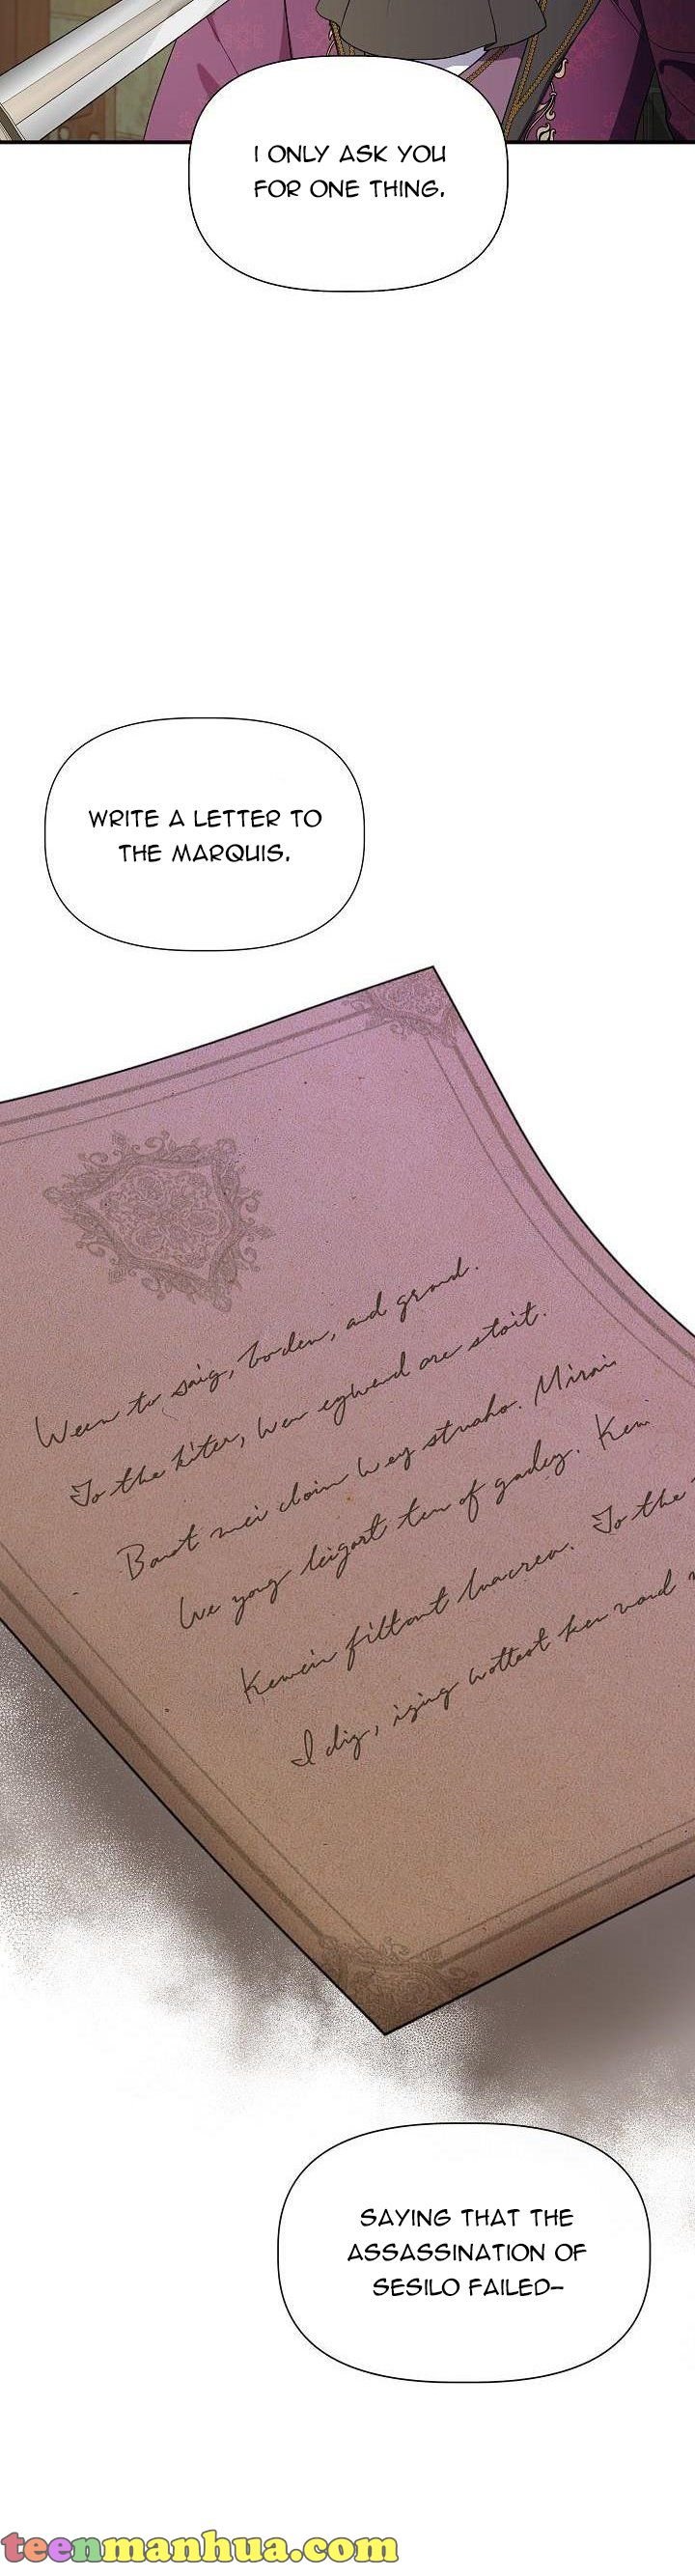 I ONLY ASK YOU
FOR ONE THING.
WRITE A LETTER TO
THE MARQUIS.
Ween to saig, boden, and grand.
To the kiter, wen egwend are stoit.
Baust mei cloin wey struaho. Mirais
We yong leigart ten of gadey. Keni
Kewein filtont luacrea. To the
I dig, izing wottest ken vand
SAYING THAT THE
ASSASSINATION OF
SESILO FAILED-
teenmanhua.com